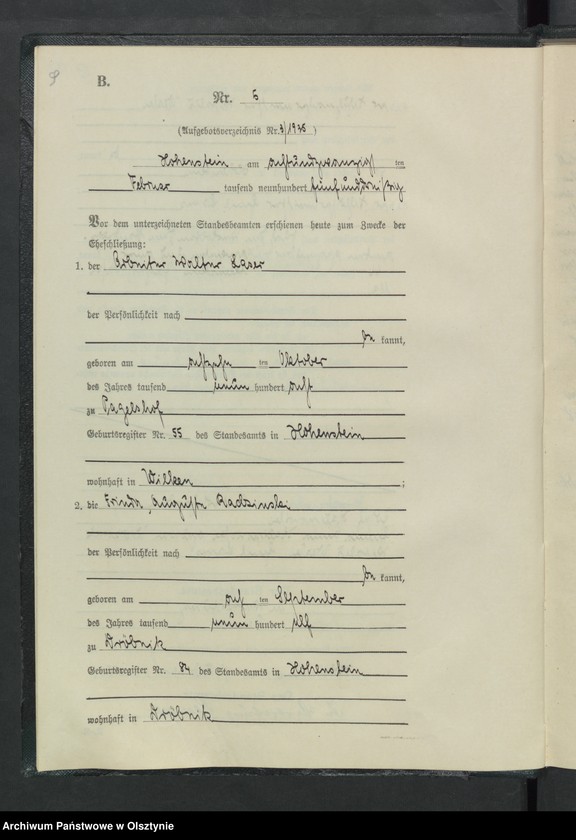 9
B.
Nr. 6
(Aufgebotsverzeichnis Nr. 3/1935)
Hohenstein am achtundzwanzigsten
Februar tausend neunhundert fünfunddreißig
Vor dem unterzeichneten Standesbeamten erschienen heute zum Zwecke der
Eheschließung:
1. der Arbeiter Walter Laser
der Persönlichkeit nach
be kannt,
geboren am achtzehn ten Oktober
des Jahres tausend neun hundert acht
zu Pagelshof
Geburtsregister Nr. 55 des Standesamts in Hohenstein
wohnhaft in Wilken ;
2. die Frieda, Auguste Radzinski
der Persönlichkeit nach
be kannt,
geboren am ach ten September
des Jahres tausend neun hundert elf
zu Dröbnitz
Geburtsregister Nr. 84 des Standesamts in Hohenstein
wohnhaft in Dröbnitz
Archiwum Państwowe w Olsztynie